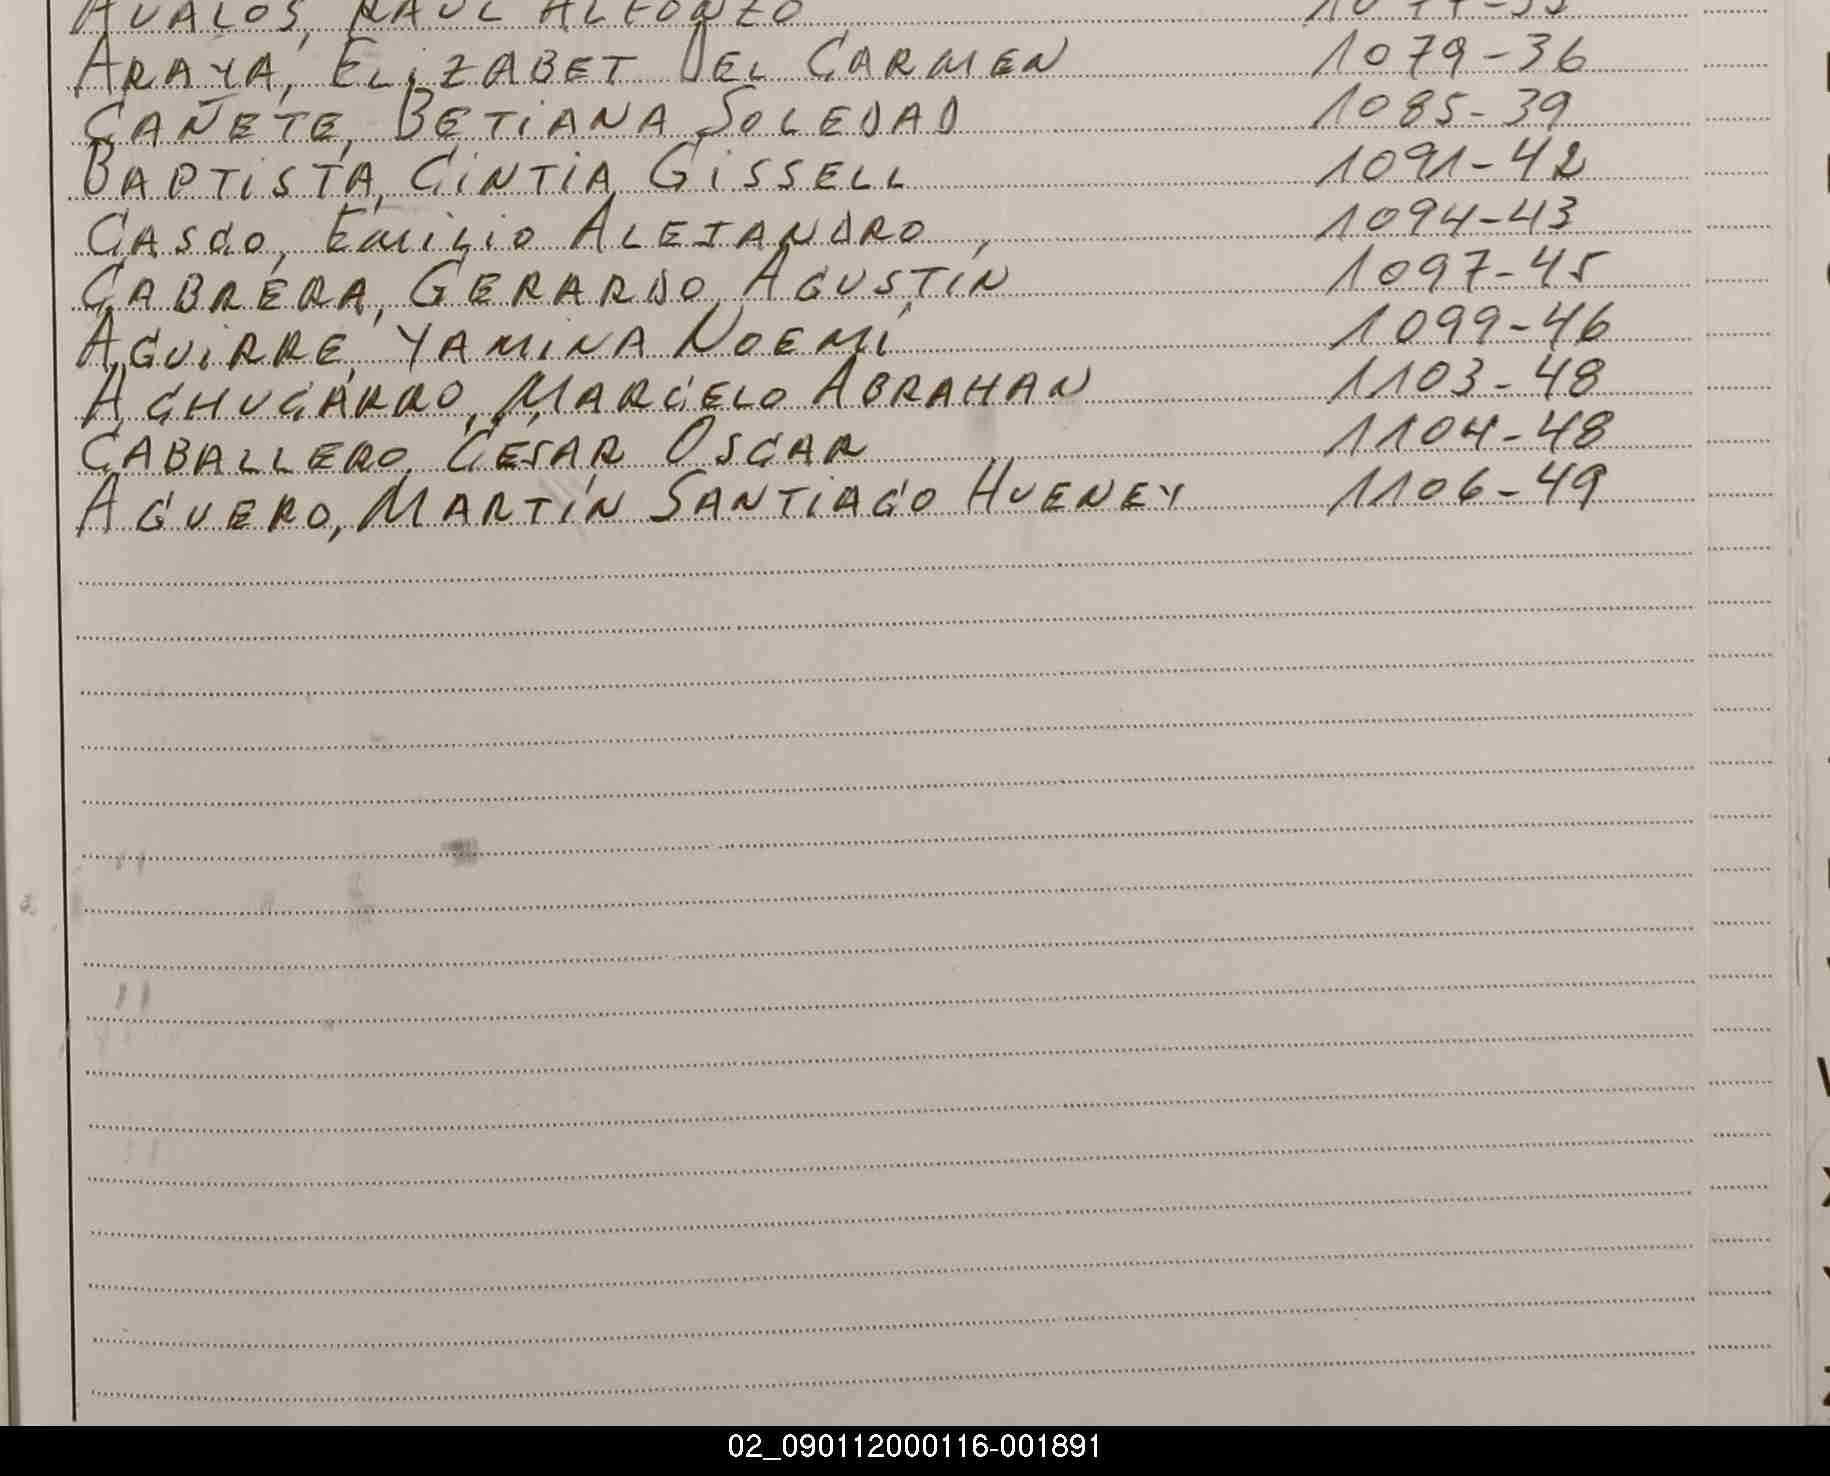 AVALOS, RAUL ALFONZO 1077-35
ARAYA, ELIZABET DEL CARMEN 1079-36
CAÑETE, BETIANA SOLEDAD 1085-39
BAPTISTA, CINTIA GISSELL 1091-42
CASCO, EMILIO ALEJANDRO 1094-43
CABRERA, GERARDO AGUSTÍN 1097-45
AGUIRRE, YAMINA NOEMÍ 1099-46
ACHUCARRO, MARCELO ABRAHAN 1103-48
CABALLERO, CÉSAR OSCAR 1104-48
AGUERO, MARTÍN SANTIAGO HUENEY 1106-49
02_090112000116-001891